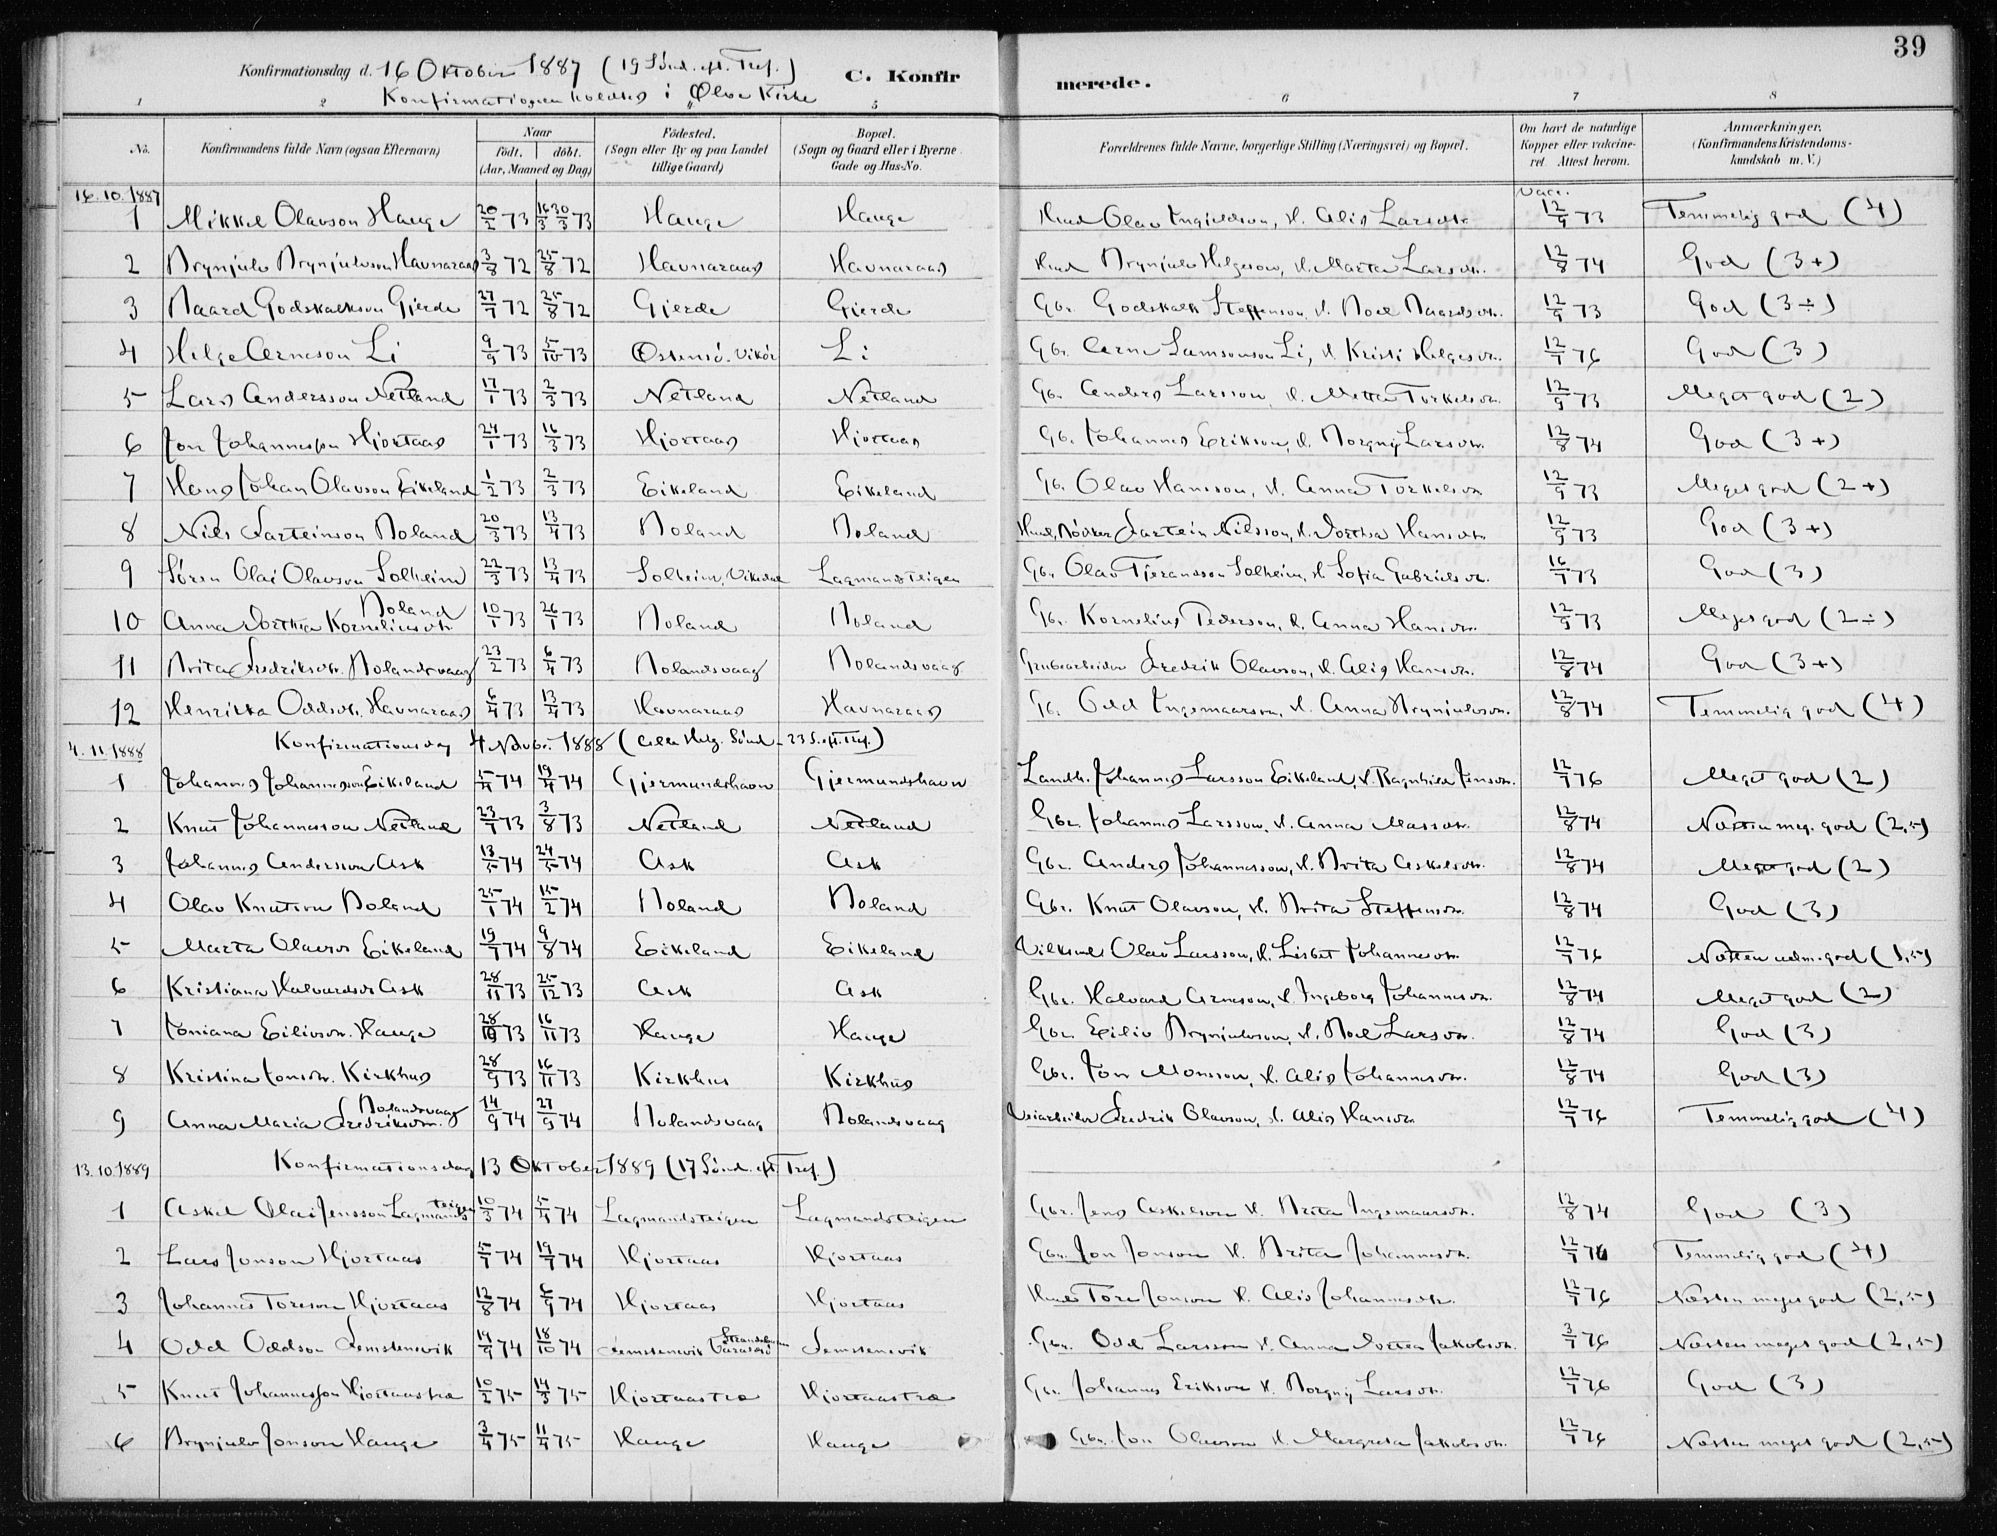 39
Konfirmationsdag d. 16 Oktober 1887 (19 Sønd. eft. Tref.) C. Konfirmerede.
Konfirmationen holdtes i Ølve Kirke
1 2 5 6 7 8
No. Konfirmandens fulde Navn (ogsaa Efternavn) Naar født. døbt. (Aar, Maaned og Dag) Fødested. (Sogn eller By og paa Landet tillige Gaard) Bopæl. (Sogn og Gaard eller i Byerne Gade og Hus-No. Forældrenes fulde Navne, borgerlige Stilling (Næringsvei) og Bopæl. Om havt de naturlige Kopper eller vakcineret. Attest herom. Anmærkninger. (Konfirmandens Kristendomskundskab m. V.)
16.10.1887 Vacc.
1 Mikkel Olavson Hauge 20/2 73 16/3 30/3 73 Hauge Hauge Olav Ingjeldson, H. Alis Larsdtr. 12/9 73 Temmelig god (4)
2 Brynjulv Brynjulvson Havnaraas 3/8 72 25/8 72 Havnaraas Havnaraas Brynjulv Helgeson, H. Marta Larsdtr. 12/8 74 God (3+)
3 Baard Godskalkson Gjerde 27/7 72 25/8 72 Gjerde Gjerde Gbr. Godskalk Steffenson, H. Boel Baardsdtr. 12/9 73 God (3÷)
4 Helge Arneson Li 9/9 73 5/10 73 Østensø. Vikør Li Gbr. Arne Samsonson Li, H. Kristi Helgesdtr. 12/7 76 God (3)
5 Lars Andersson Netland 17/1 73 2/3 73 Netland Netland Gbr. Anders Larsson, H. Metta Torkelsdtr. 12/9 73 Meget god (2)
6 Jon Johannesson Hjortaas 24/1 73 16/3 73 Hjortaas Hjortaas Gb. Johannes Erikson, H. Borgny Larsdtr. 12/8 74 God (3+)
7 Hans Johan Olavson Eikeland 1/2 73 2/3 73 Eikeland Eikeland Gb. Olav Hansson, H. Anna Torkelsdtr. 12/9 73 Meget god (2+)
8 Nils Sarteinson Boland 20/3 73 13/4 73 Boland Boland Sartein Nilsson, H. Dorthea Hansdtr. 12/9 73 God (3+)
9 Søren Olai Olavson Solheim 22/3 73 13/4 73 Solheim, Vikedal Lagmandsteigen Gbr. Olav Tjeransson Solheim, H. Sofia Gabrielsdtr. 16/7 73 God (3)
10 Anna Dorthea Korneliusdtr. Boland 10/1 73 26/1 73 Boland Boland Gbr. Kornelius Pederson, H. Anna Hansdtr. 12/9 73 Meget god (2÷)
11 Brita Fredriksdtr. Bolandsvaag 23/2 73 6/4 73 Bolandsvaag Bolandsvaag Grubearbeider Fredrik Olavson, H. Alis Hansdtr. 12/8 74 God (3+)
12 Henrikka Oddsdtr. Havnaraas 6/4 73 13/4 73 Havnaraas Havnaraas Gb. Odd Ingemaarson, H. Anna Brynjulvsdtr. 12/8 74 Temmelig god (4)
4.11.1888 Konfirmationsdag 4 Novbr. 1888 (Alle Helg. Sønd. - 23 S. eft. Tref.)
1 Johannes Johannesson Eikeland 5/4 74 19/4 74 Gjermundshavn Gjermundshavn Landh. Johannes Larsson Eikeland, H. Ragnhild Jensdtr. 12/7 76 Meget god (2)
2 Knut Johannesson Netland 23/7 73 3/8 73 Netland Netland Gbr. Johannes Larsson, H. Anna Massdtr. 12/8 74 Næsten meg. god (2,5)
3 Johannes Andersson Ask 13/5 74 24/5 74 Ask Ask Gbr. Anders Johannesson, H. Brita Askelsdtr. 12/8 74 Meget god (2)
4 Olav Knutson Boland 25/1 74 15/2 74 Boland Boland Gbr. Knut Olavson, H. Brita Steffensdtr. 12/8 74 God (3)
5 Marta Olavsdr Eikeland 19/7 74 9/8 74 Eikeland Eikeland Olav Larsson, H. Lisbet Johannesdtr. 12/7 76 Næsten udm. god (1,5)
6 Kristiana Halvardsdr Ask 28/11 73 25/12 73 Ask Ask Gbr. Halvard Arneson, H. Ingeborg Johannesdtr. 12/8 74 Meget god (2)
7 Joniana Eilivsdtr. Hauge 28/10 73 16/11 73 Hauge Hauge Gbr. Eiliv Brynjulvson, H. Boel Larsdtr. 12/8 74 God (3)
8 Kristina Jonsdtr. Kirkhus 28/9 73 16/11 73 Kirkhus Kirkhus Gbr. Jon Monsson, H. Alis Johannesdtr. 12/8 74 God (3)
9 Anna Maria Fredriksdtr. Bolandsvaag 14/9 74 27/9 74 Bolandsvaag Bolandsvaag Veiarbeider Fredrik Olavson, H. Alis Hansdtr 12/7 76 Temmelig god (4)
13.10.1889 Konfirmationsdag 13 Oktober 1889 (17 Sønd. eft. Tref.)
1 Askel Olai Jensson Lagmandsteigen 10/3 74 5/4 74 Lagmandsteigen Lagmandsteigen Gbr. Jens Askelson H. Brita Ingemaarsdtr. 12/8 74 God (3)
2 Lars Jonson Hjortaas 5/7 74 19/7 74 Hjortaas Hjortaas Gbr. Jon Jonson H. Brita Johannesdtr. 12/7 76 Temmelig god (4)
3 Johannes Toreson Hjortaas 12/8 74 6/9 74 Hjortaas Hjortaas Tore Jonson H. Alis Johannesdtr. 12/7 76 Næsten meget god (2,5)
4 Odd Oddson Femstenevik 19/9 74 18/10 74 Femstenevik Varaldsø Femstenevik Gbr. Odd Larsson H. Anna Dortea Jakobsdtr. 3/7 76 Næsten meget god (2,5)
5 Knut Johannesson Hjortaastræ 10/2 75 14/3 75 Hjortaastræ Hjortaastræ Gbr. Johannes Erikson H. Borgny Larsdtr. 12/7 76 God (3)
6 Brynjulv Jonson Hauge 3/4 75 11/4 75 Hauge Hauge Gbr. Jon Olavson H. Margreta Jakobsdtr. 12/7 76 Næsten meget god (2,5)